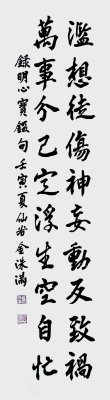 濫想徒傷神妄動反致禍
萬事分已定浮生空自忙
錄明心寶鑑句壬寅夏仙金洙滿